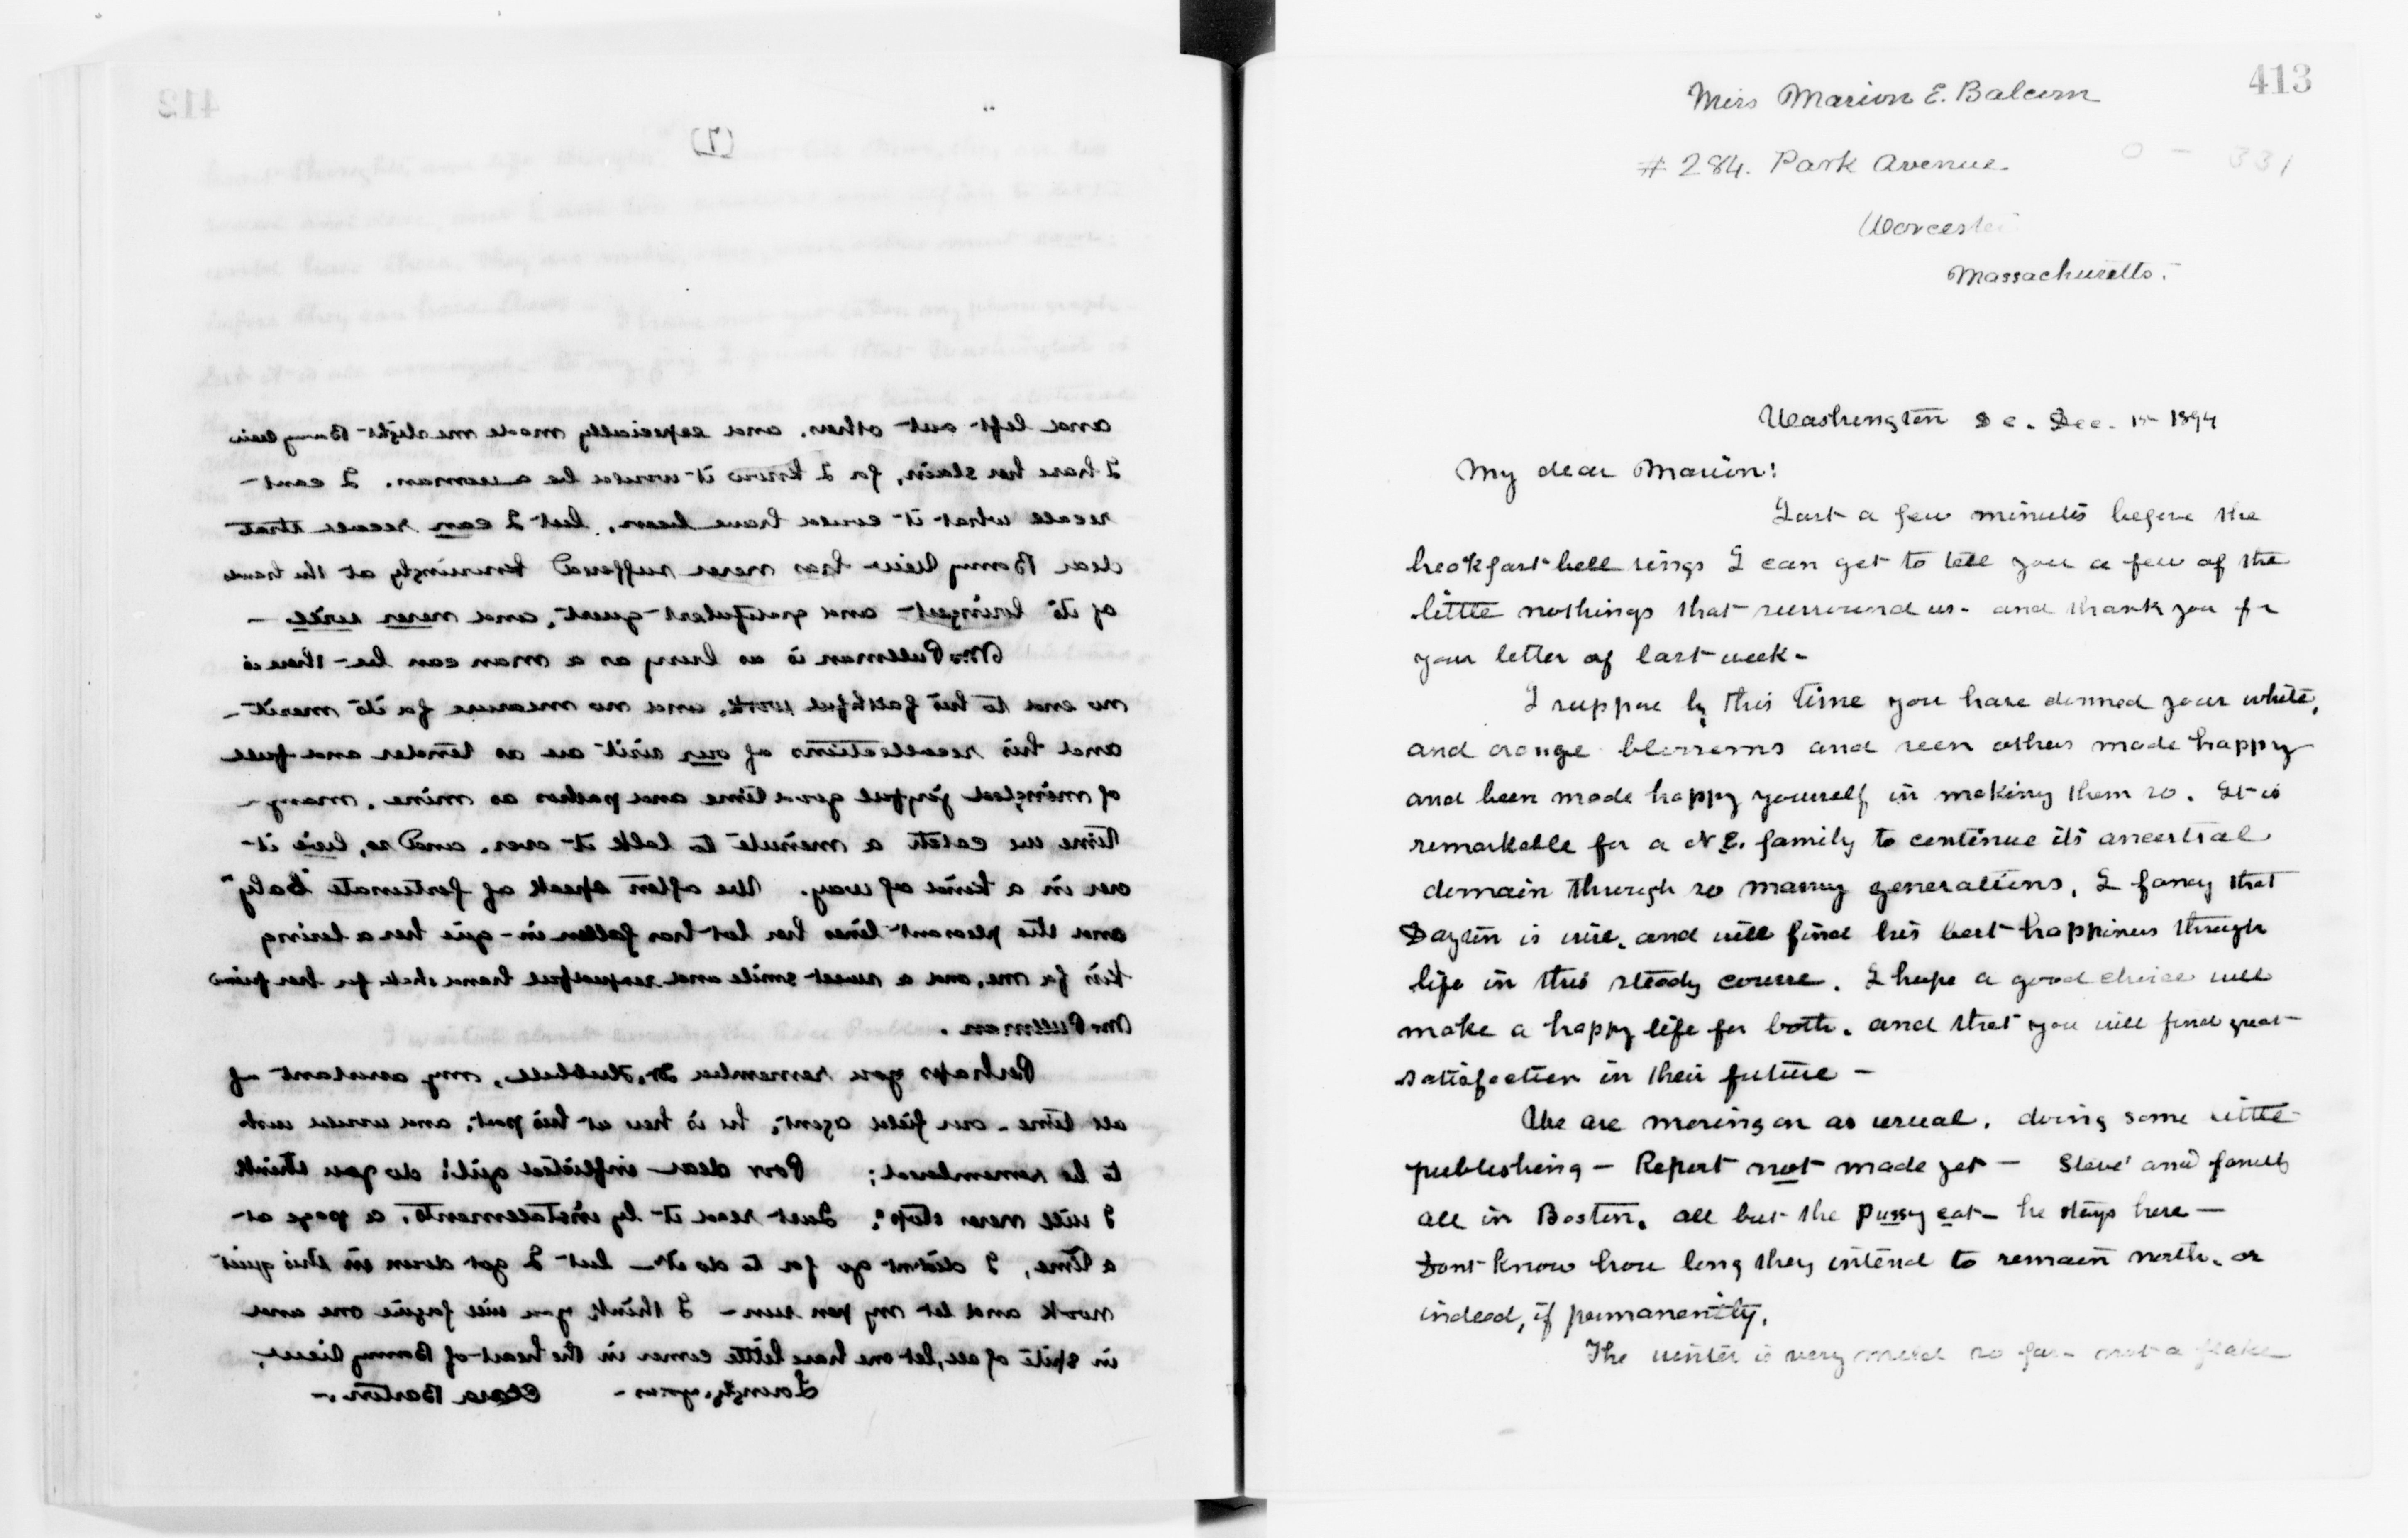 412
(7)
and left out others. and especially made me slight Bonny View
I have her slain, for I know it would be a woman. I cant
recall what it could have been, but I can recall that
dear Bonny View has never suffered knowingly at the hands
of its lovingest and gratefulest guest, and never will —
Mr Pullman is as busy as a man can be — there is
no end to his faithful work, and no measure for its merit —
and his recollections of our visit are as tender and full
of mingled joyful good time and pathos as mine. many
time we catch a minute to talk it over. and so, live it
over in a kind of way. We often speak of fortunate "Baby"
and the pleasant lines her lot has fallen in — give her a loving
kiss for me, and a sweet smile and respectful hand shake for her friend
Mr Pullman.
Perhaps you remember Dr. Hubbell, my assistant of
all time — our field agent, he is here at his post, and would wish
to be remembered; Poor dear inflicted girl! do you think
I will never stop? Just read it by installments, a page at
a time, I didnt go for to do it — but I got down in this quiet
nook and let my pen run — I think you will forgive me and
in spite of all, let me have little corner in the heart of Bonny View.
Lovingly, yours — Clara Barton —
413
Miss Marion E. Balcom
# 284. Park Avenue.
0 — 331
Worcester
Massachusetts.
Washington D C. Dec. 1st 1894
My dear Marion!
Just a few minutes before the
breakfast bell rings I can get to tell you a few of the
little nothings that surround us — and thank you for
your letter of last week —
I suppose by this time you have donned your white,
and orange blossoms and seen others made happy
and been made happy yourself in making them so. It is
remarkable for a N E. family to continue its ancestral
domain through so many generations, I fancy that
Dayton is wise, and will find his best happiness through
life in this steady course. I hope a good choice will
make a happy life for both. and that you will find great
satisfaction in their future —
We are moving on as usual. doing some little
publishing — Report not made yet — Steve' and family
all in Boston, all but the Pussy cat — he stays here —
Dont know how long they intend to remain north. or
indeed, if permanently.
The winter is very mild so far — not a flake